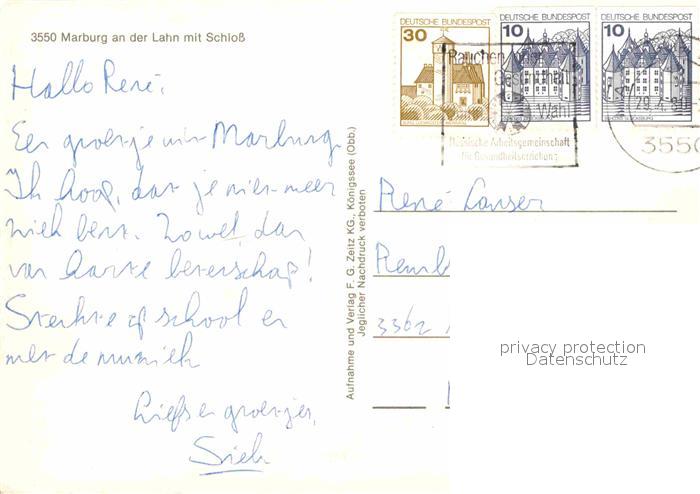 3550 Marburg an der Lahn mit Schloß
Hallo René,
Een groetje uit Marburg
Ik hoop, dat je niet meer
ziek bent. Zo wel, dan
van harte beterschap!
Sterkte op school en
met de muziek
Liefs en groetjes,
Siek
Aufnahme und Verlag F. G. Zeitz KG., Königssee (Obb.)
Jeglicher Nachdruck verboten
DEUTSCHE BUNDESPOST
30
DEUTSCHE BUNDESPOST
10
DEUTSCHE BUNDESPOST
10
Rauchen oder
Gesundheit
Wahl
Hessische Arbeitsgemeinschaft
für Gesundheitserziehung
3550
René
Remb
3362
privacy protection
Datenschutz